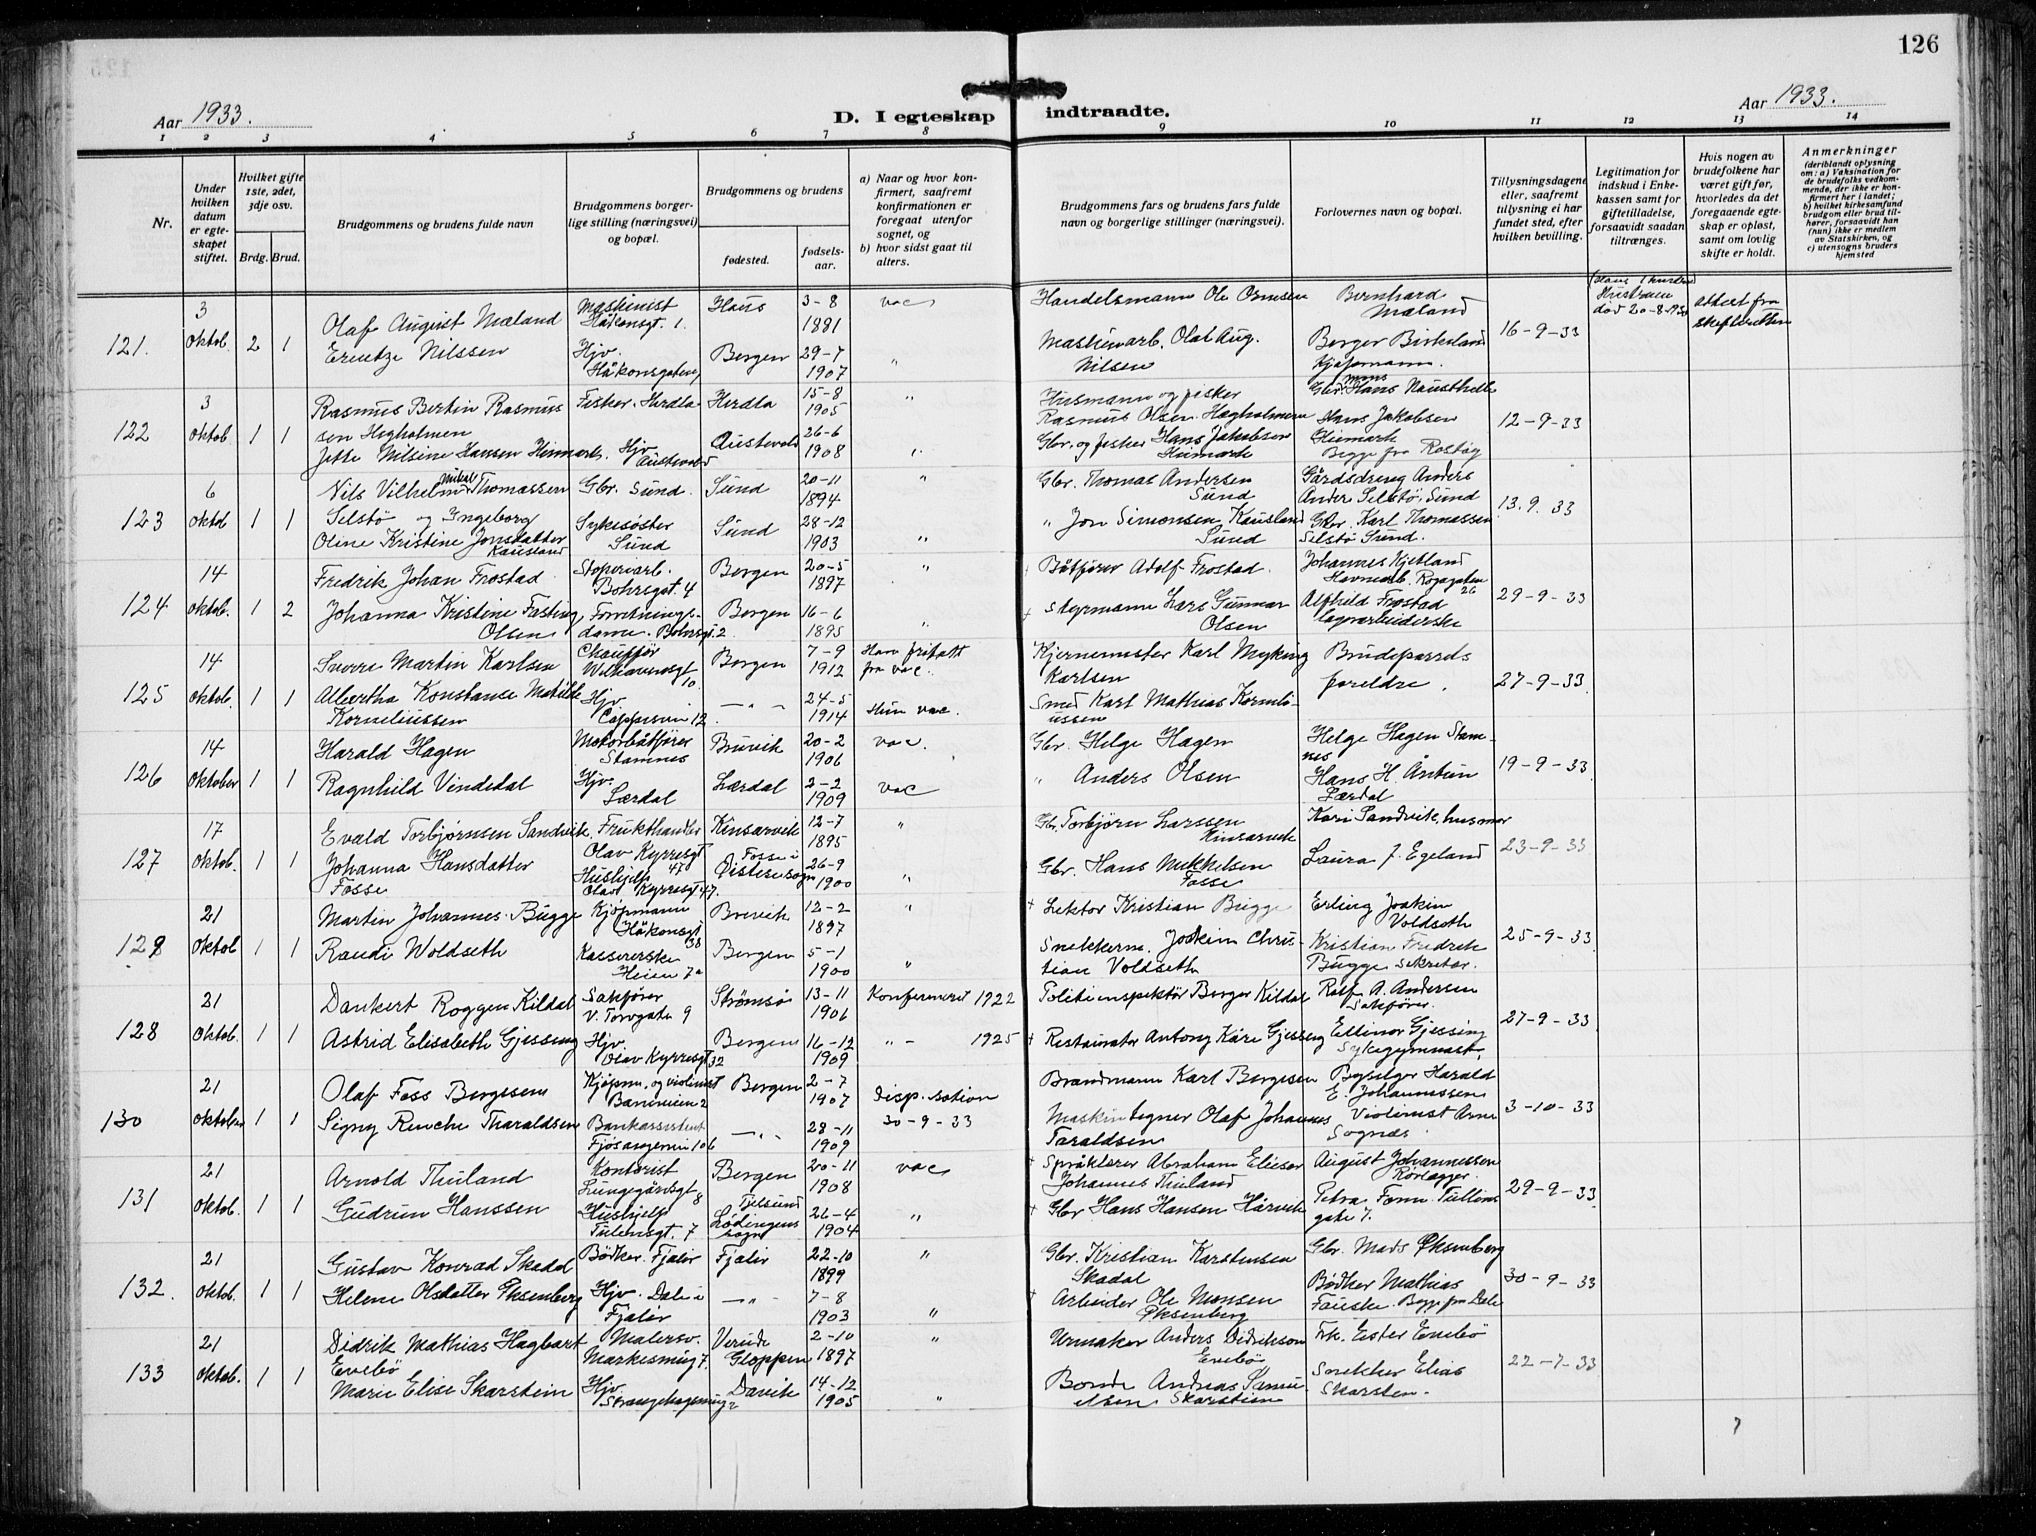 126
Aar 1933.
D. I egteskap indtraadte.
Aar 1933.
1 2 3 4 5 6 7 8 9 10 11 12 13 14
Nr.
Under hvilken datum er egte-skapet stiftet.
Hvilket gifte 1ste, 2det, 3dje osv.
Brdg. Brud.
Brudgommens og brudens fulde navn
Brudgommens borger-lige stilling (næringsvei) og bopæl.
Brudgommens og brudens
fødested.
fødsels-aar.
a) Naar og hvor kon-firmert, saafremt konfirmationen er foregaat utenfor sognet, og
b) hvor sidst gaat til alters.
Brudgommens fars og brudens fars fulde navn og borgerlige stillinger (næringsvei).
Forlovernes navn og bopæl.
Tillysningsdagene eller, saafremt tillysning ei har fundet sted, efter hvilken bevilling.
Legitimation for indskud i Enke-kassen samt for giftetilladelse, forsaavidt saadan tiltrænges.
Hvis nogen av brudefolkene har været gift før, hvorledes da det foregaaende egte-skap er opløst, samt om lovlig skifte er holdt.
Anmerkninger
(deriblandt oplysning om: a) Vaksination for de brudefolks vedkom-mende, der ikke er kon-firmert her i landet; b) hvilket kirkesamfund brudgom eller brud til-hører, forsaavidt han (hun) ikke er medlem av Statskirken, og c) utensogns bruders hjemsted
121. 3 Oktob. 2 1
Olaf August Mæland Maskinist Håkonsgt. 1. Haus 3-8 1881 vac
Nilssen Hjv. Håkonsgaten Bergen 29-7 1907 "
Handelsmann Ole
Maskinarb. Olaf Aug. Nilsen
Bernhard Mæland
Berger Birkeland
16-9-33
Hustruen død 20-8-
Attest fra skifteretten
122 3 Oktob 1 1
Rasmus Bertin Rasmussen Fisker. Herdla Herdla 15-8 1905 "
Jette Nilsine Hansen Hjv. Austevold Austevold 26-6 1908 "
Husmann og fisker Rasmus Olsen
Gbr. og fisker Hans Jakobsen
Gbr. Hans
Hans Jakobsen
Begge fra
12-9-33
123 6 Oktob 1 1
Nils Vilhelm Mikal Thomassen Selstø og Ingeborg Oline Kristine Jonsdatter Kausland
Gbr. Sund. Sund 20-11 1894 "
Sykesøster Sund Sund 28-12 1903 "
Gbr. Thomas Andersen Sund
" Jon Simonsen Kausland Sund
Gårdsdreng Anders Selstø, Sund
Gbr. Karl Thomassen Selstø Sund.
13.9.33
124 14 oktob. 1 2
Fredrik Johan Frostad Stoperiarb. Bohrsgt. 4 Bergen 20-5 1897 "
Johanna Kristine Fasting Olsen Forretnings-dame. Bohrsgt. 2 Bergen 16-6 1895 "
Båtfører Adolf Frostad.
+ Styrmann Lars Gunnar Olsen
Johannes Kjetland Havnearb. 26
Alfhild Frostad lagerarbeiderske
29-9-33
125 14 Oktob. 1 1
Sverre Martin Karlsen Chauffør 10 Bergen 7-9 1912 Han fritatt fra vac.
Albertha Konstance Matilde Korneliussen Hjv. 12. -"- 24-5 1914 Hun vac.
Kjernemester Karl Myking Karlsen
Smed Karl Mathias Korneli-ussen
Brudeparrets foreldre.
27-9-33
126 14 Oktober 1 1
Harald Hagen Motorbåtfører Stamnes Bruvik 20-2 1906 vac.
Ragnhild Vindedal Hjv. Lærdal Lærdal 2-2 1909 vac
Gbr. Helge Hagen
" Anders Olsen
Helge Hagen Stam-nes
Hans H. Lærdal
19-9-33
127 17 Oktob. 1 1
Evald Torbjørnsen Sandvik, Frukthandler Olav Kyrresgt 47 Kinsarvik 12-7 1895 "
Johanna Hansdatter Fosse Hushjelp Olavs Kyrresgt 47. Fosse i Øistese sogn 26-9 1900 "
Gbr. Torbjörn Larssen Kinsarvik
Gbr. Hans Mikkelsen Fosse
Kari Sandvik, husmor
Laura J. Egeland
23-9-33
129 21 Oktob 1 1
Martin Johannes Bugge Kjøpmann Håkonsgt 38 Brevik 12-2 1897 "
Randi Woldseth Kassererske Heien 7a Bergen 5-1 1900 "
+ Lektor Kristian Bugge
Snekkerm. Joakim Chris-tian Voldseth
Erling Joakim Voldseth
Kristian Fredrik Bugge sekretær.
25-9-33
128 21 Oktob. 1 1
Dankert Roggen Kildal Sakfører V. Torvgate 9 Strømsø 13-11 1906 Konfirmert 1922
Astrid Elisabeth Gjessing Hjv. Olav Kyrresgt 32 Bergen 16-12 1909 " - 1925
Politiinspektör Berger Kildal
+ Restauratør Antony Kåre Gjessing
Rolf A. Andersen Sakfører.
Ellinor Gjessing Sykegymnast.
27-9-33
130 21 Oktober 1 1
Olaf Foss Bergesen Kjøpm. og violinist 2 Bergen 2-7 1907 Disp.sation 30-9-33
Signy Renche Tharaldsen Bankassistent Fjøsangerveien 106 -"- 28-11 1909
Brandmann Karl Bergesen
Maskintegner Olaf Johannes Taraldsen
Harald E. Johannessen
Violinist Arne Sognæs
3-10-33
131 21 Oktob. 1 1
Arnold Thuland Kontorist Lungegårdsgt 8 Bergen 20-11 1908 vac
Gudrun Hanssen Hushjelp 7 Tjelsund Lødingens sogn 26-4 1904 "
+ Språklærer Abraham Elieser Johannes Thuland
+ Gbr Hans Hansen Hårvik
August Johannessen Rørlegger.
Petra gate 7.
29-9-33
132. 21 Oktob. 1 1
Gustav Konrad Skadal Bødker. Fjaler Fjaler 22-10 1899 "
Helene Olsdatter Øksenberg Hjv. Dale i Fjaler -"- 7-8 1903 "
Gbr. Kristian Karstensen Skadal
+ Arbeider Ole Monsen Øksenberg
Gbr. Mads Øksenberg
Bødker Mathias Fauske. Begge fra Dale
30-9-33
133 21 Oktob. 1 1
Didrik Mathias Hagbart Evebö Malersv. Markesmug 7. Gloppen 2-10 1897 "
Marie Elise Skarstein Hjv. Strangehagen Davik 14-12 1905 "
Urmaker Anders Didrikson Evebö
Bonde Andreas Samu-elsen Skarstein
Frk. Ester Evebö
Snekker Elias Skarsten.
22-7-33